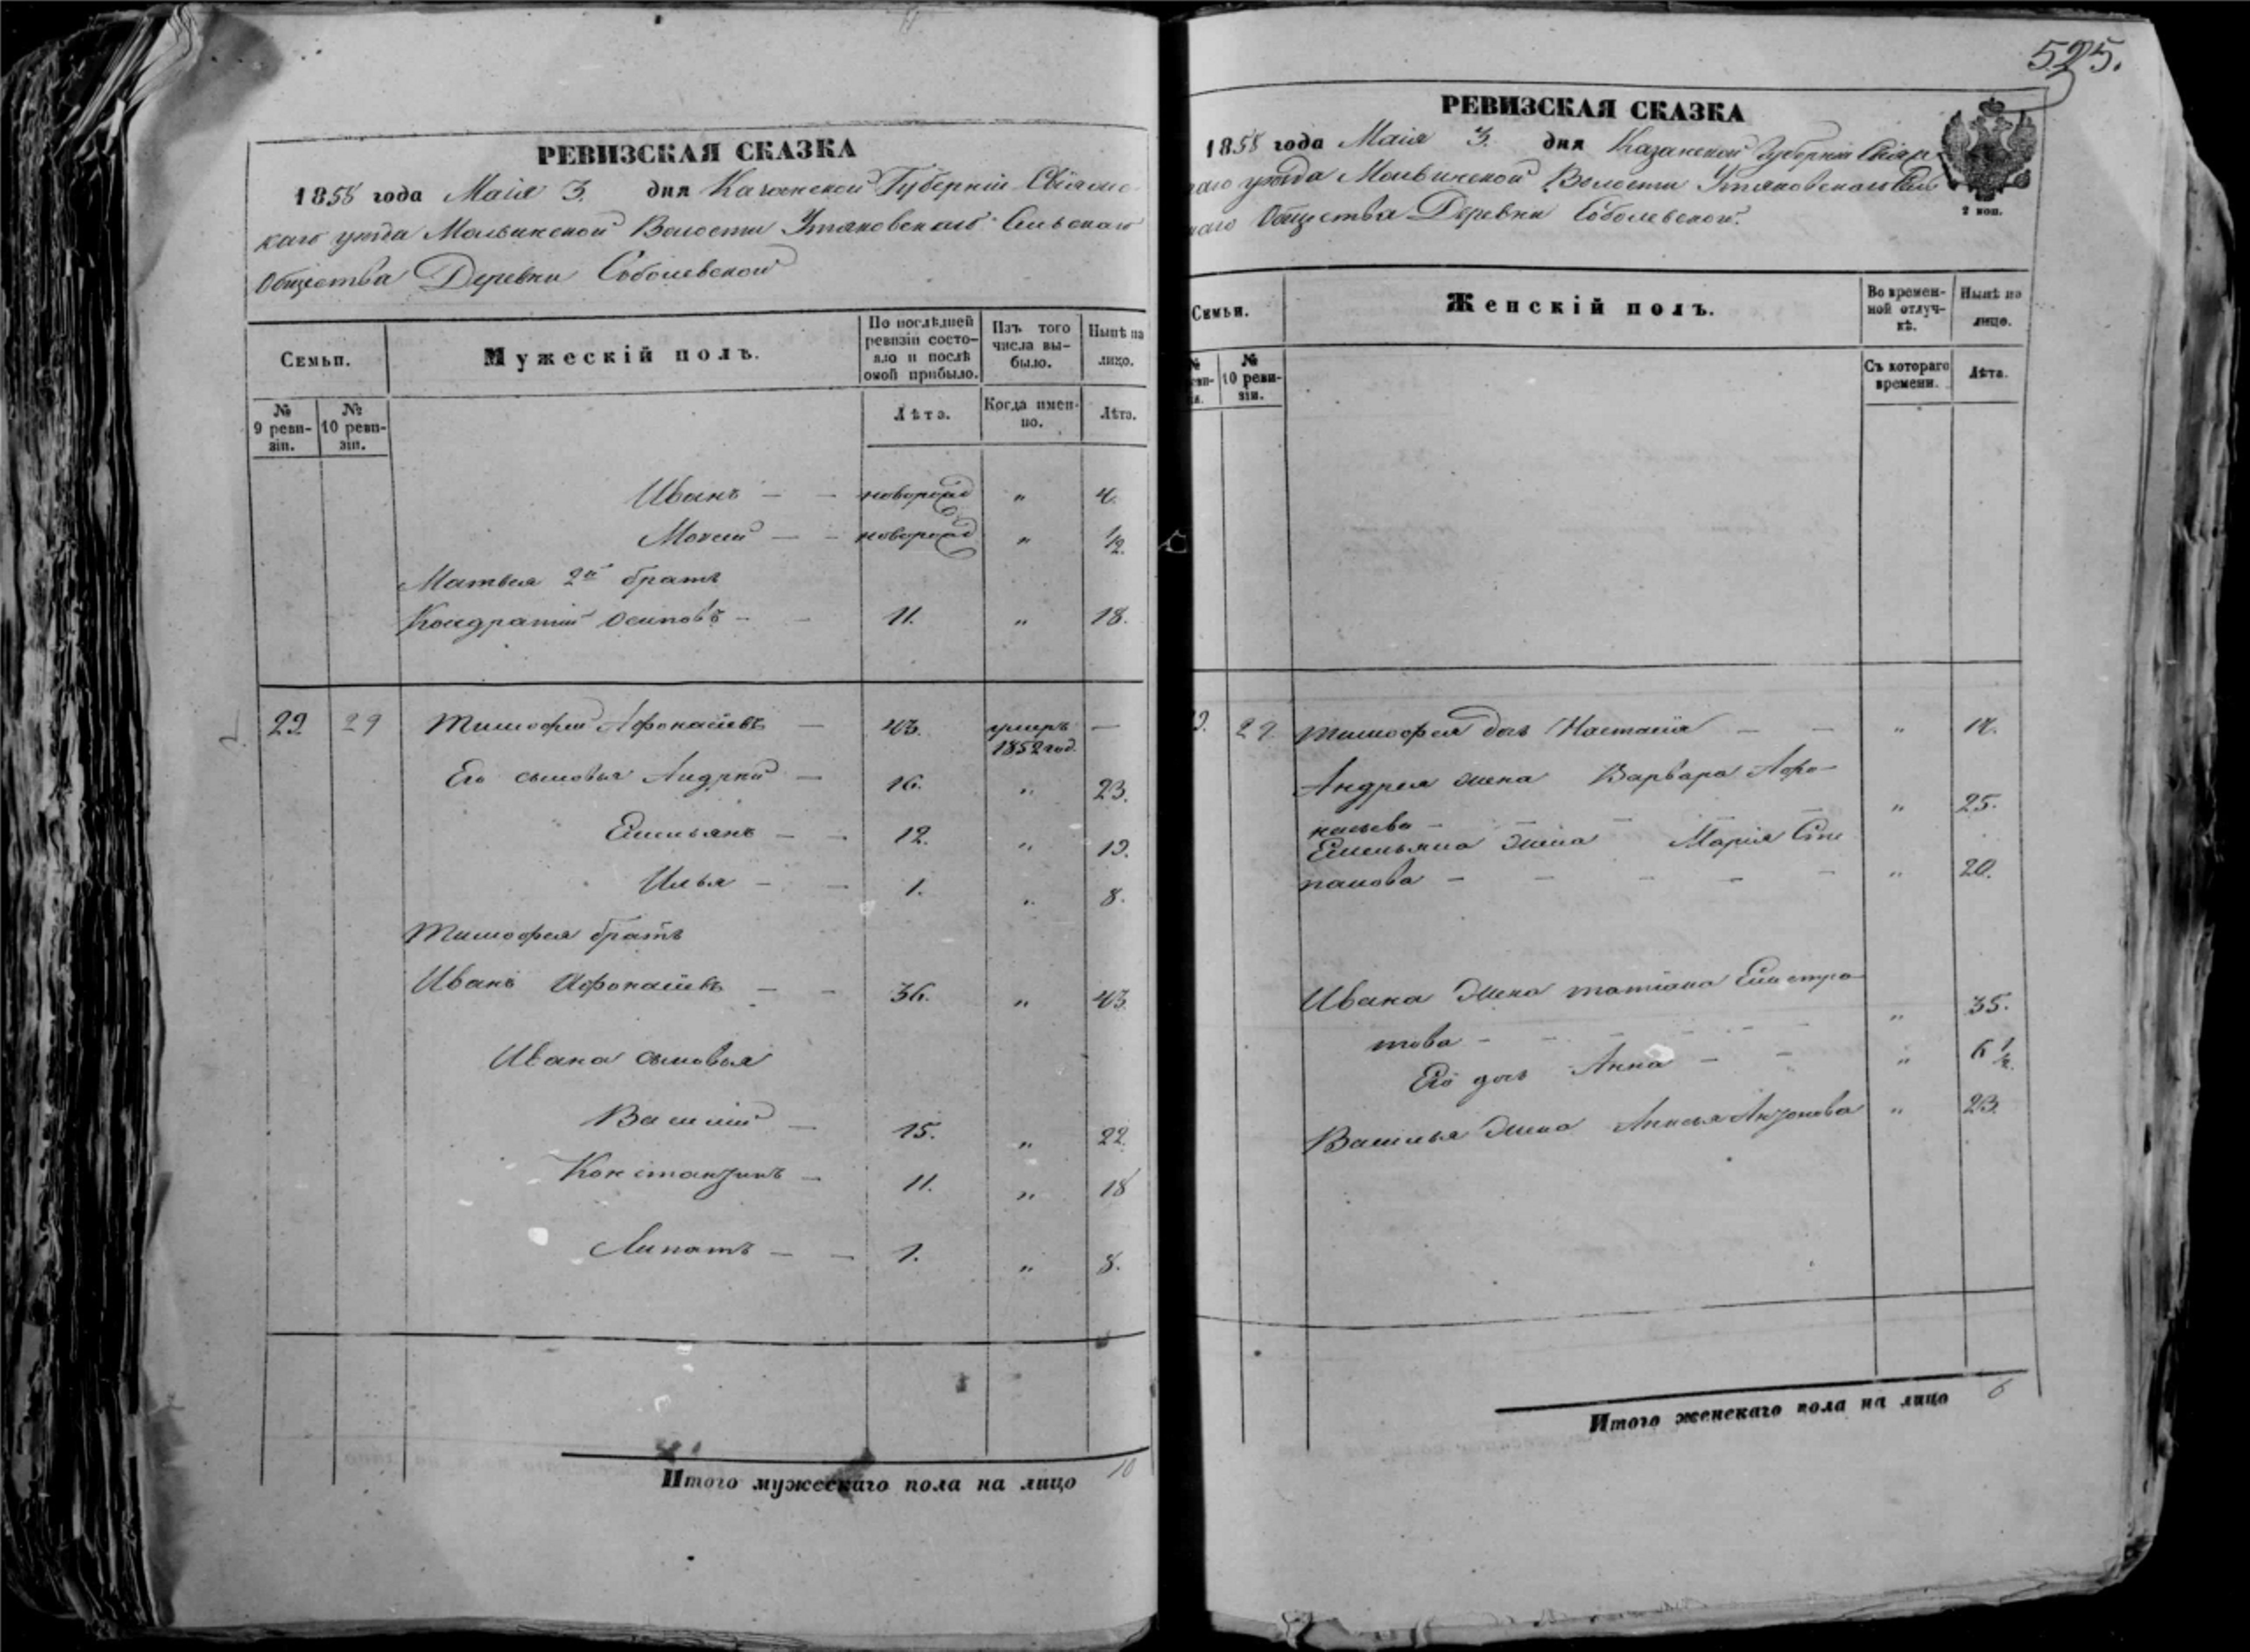 РЕВИЗСКАЯ СКАЗКА
1858 года Маія 3. дня Казанской Губерніи Свіяжс
каго уезда Молвинской Волости Утяковскаго Сельскаго
Общества Деревни Соболевской
Семьи.
Мужескій полъ.
По послѣдней ревизіи состояло и послѣ оной прибыло.
Изъ того числа выбыло.
Нынѣ на лицо.
№ 9 ревизіи.
№ 10 ревизіи.
Лѣта.
Когда именно.
Лѣта.
Иванъ — — новорожд " 4.
Мокей — — новорожд " 1/2.
Матвея 2й братъ
Кондратій Осиповъ — — 11. " 18.
29. 29 Тимофей Афонасьевъ — 43. умеръ 1852 год. —
Его сыновья Андрей — 16. " 23.
Емельянъ — — 12. " 19.
Илья — — 1. " 8.
Тимофея братъ
Иванъ Афонасьевъ — — 36. " 43.
Ивана сыновья
Василій — 15. " 22.
Константинъ — 11. " 18
Липатъ — — 1. " 8.
Итого мужескаго пола на лицо 10
525.
РЕВИЗСКАЯ СКАЗКА
1858 года Маія 3. дня Казанской Губерніи Свіяж
каго уезда Молвинской Волости Утяковскаго Сель
скаго Общества Деревни Соболевской.
2 коп.
Семьи.
Женскій полъ.
Во временной отлучкѣ.
Нынѣ на лицо.
№ 10 ревизіи.
Съ котораго времени.
Лѣта.
9. 29. Тимофея дочь Настасія — — "
Андрея жена Варвара Афо-
насьева — — — — " 25.
Емельяна жена Марія Сте
панова — — — — — " 20.
Ивана жена Татіана Елистра-
това — — — — — " 35.
Его дочь Анна — — " 6 1/2.
Василья жена Анисья Антонова " 23.
Итого женскаго пола на лицо 6